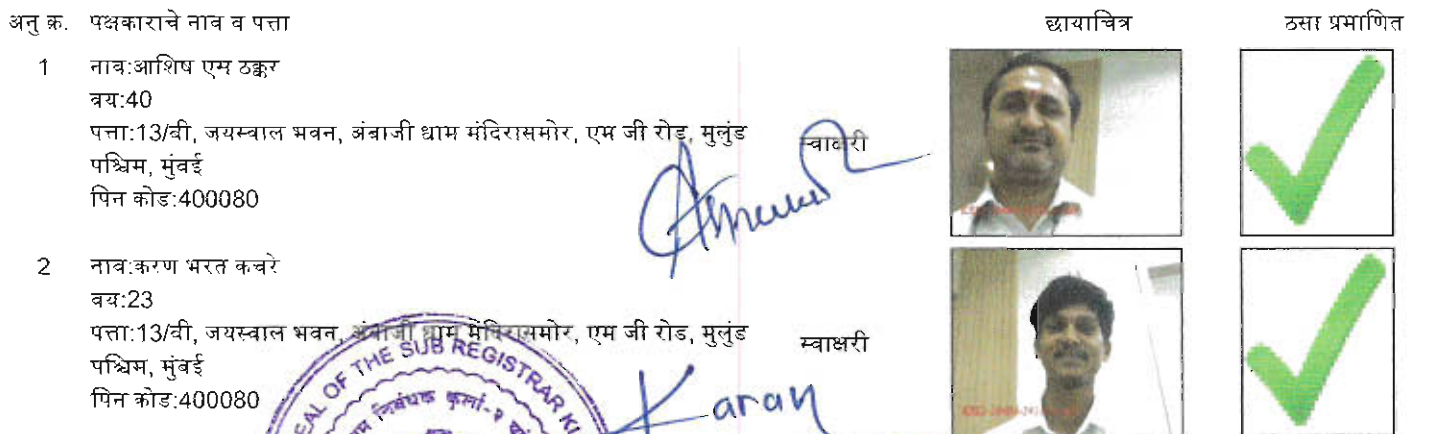 अनु क्र. पक्षकाराचे नाव व पत्ता छायाचित्र ठसा प्रमाणित
1 नाव:आशिष एम ठक्कर
वय:40
पत्ता:13/बी, जयस्वाल भवन, अंबाजी धाम मंदिरासमोर, एम जी रोड, मुलुंड स्वाक्षरी
पश्चिम, मुंबई
पिन कोड:400080
2 नाव:करण भरत कचरे
वय:23
पत्ता:13/बी, जयस्वाल भवन, अंबाजी धाम मंदिरासमोर, एम जी रोड, मुलुंड स्वाक्षरी
पश्चिम, मुंबई
पिन कोड:400080
Karan
SEAL OF THE SUB REGISTRAR
निबंधक कुर्ला-२